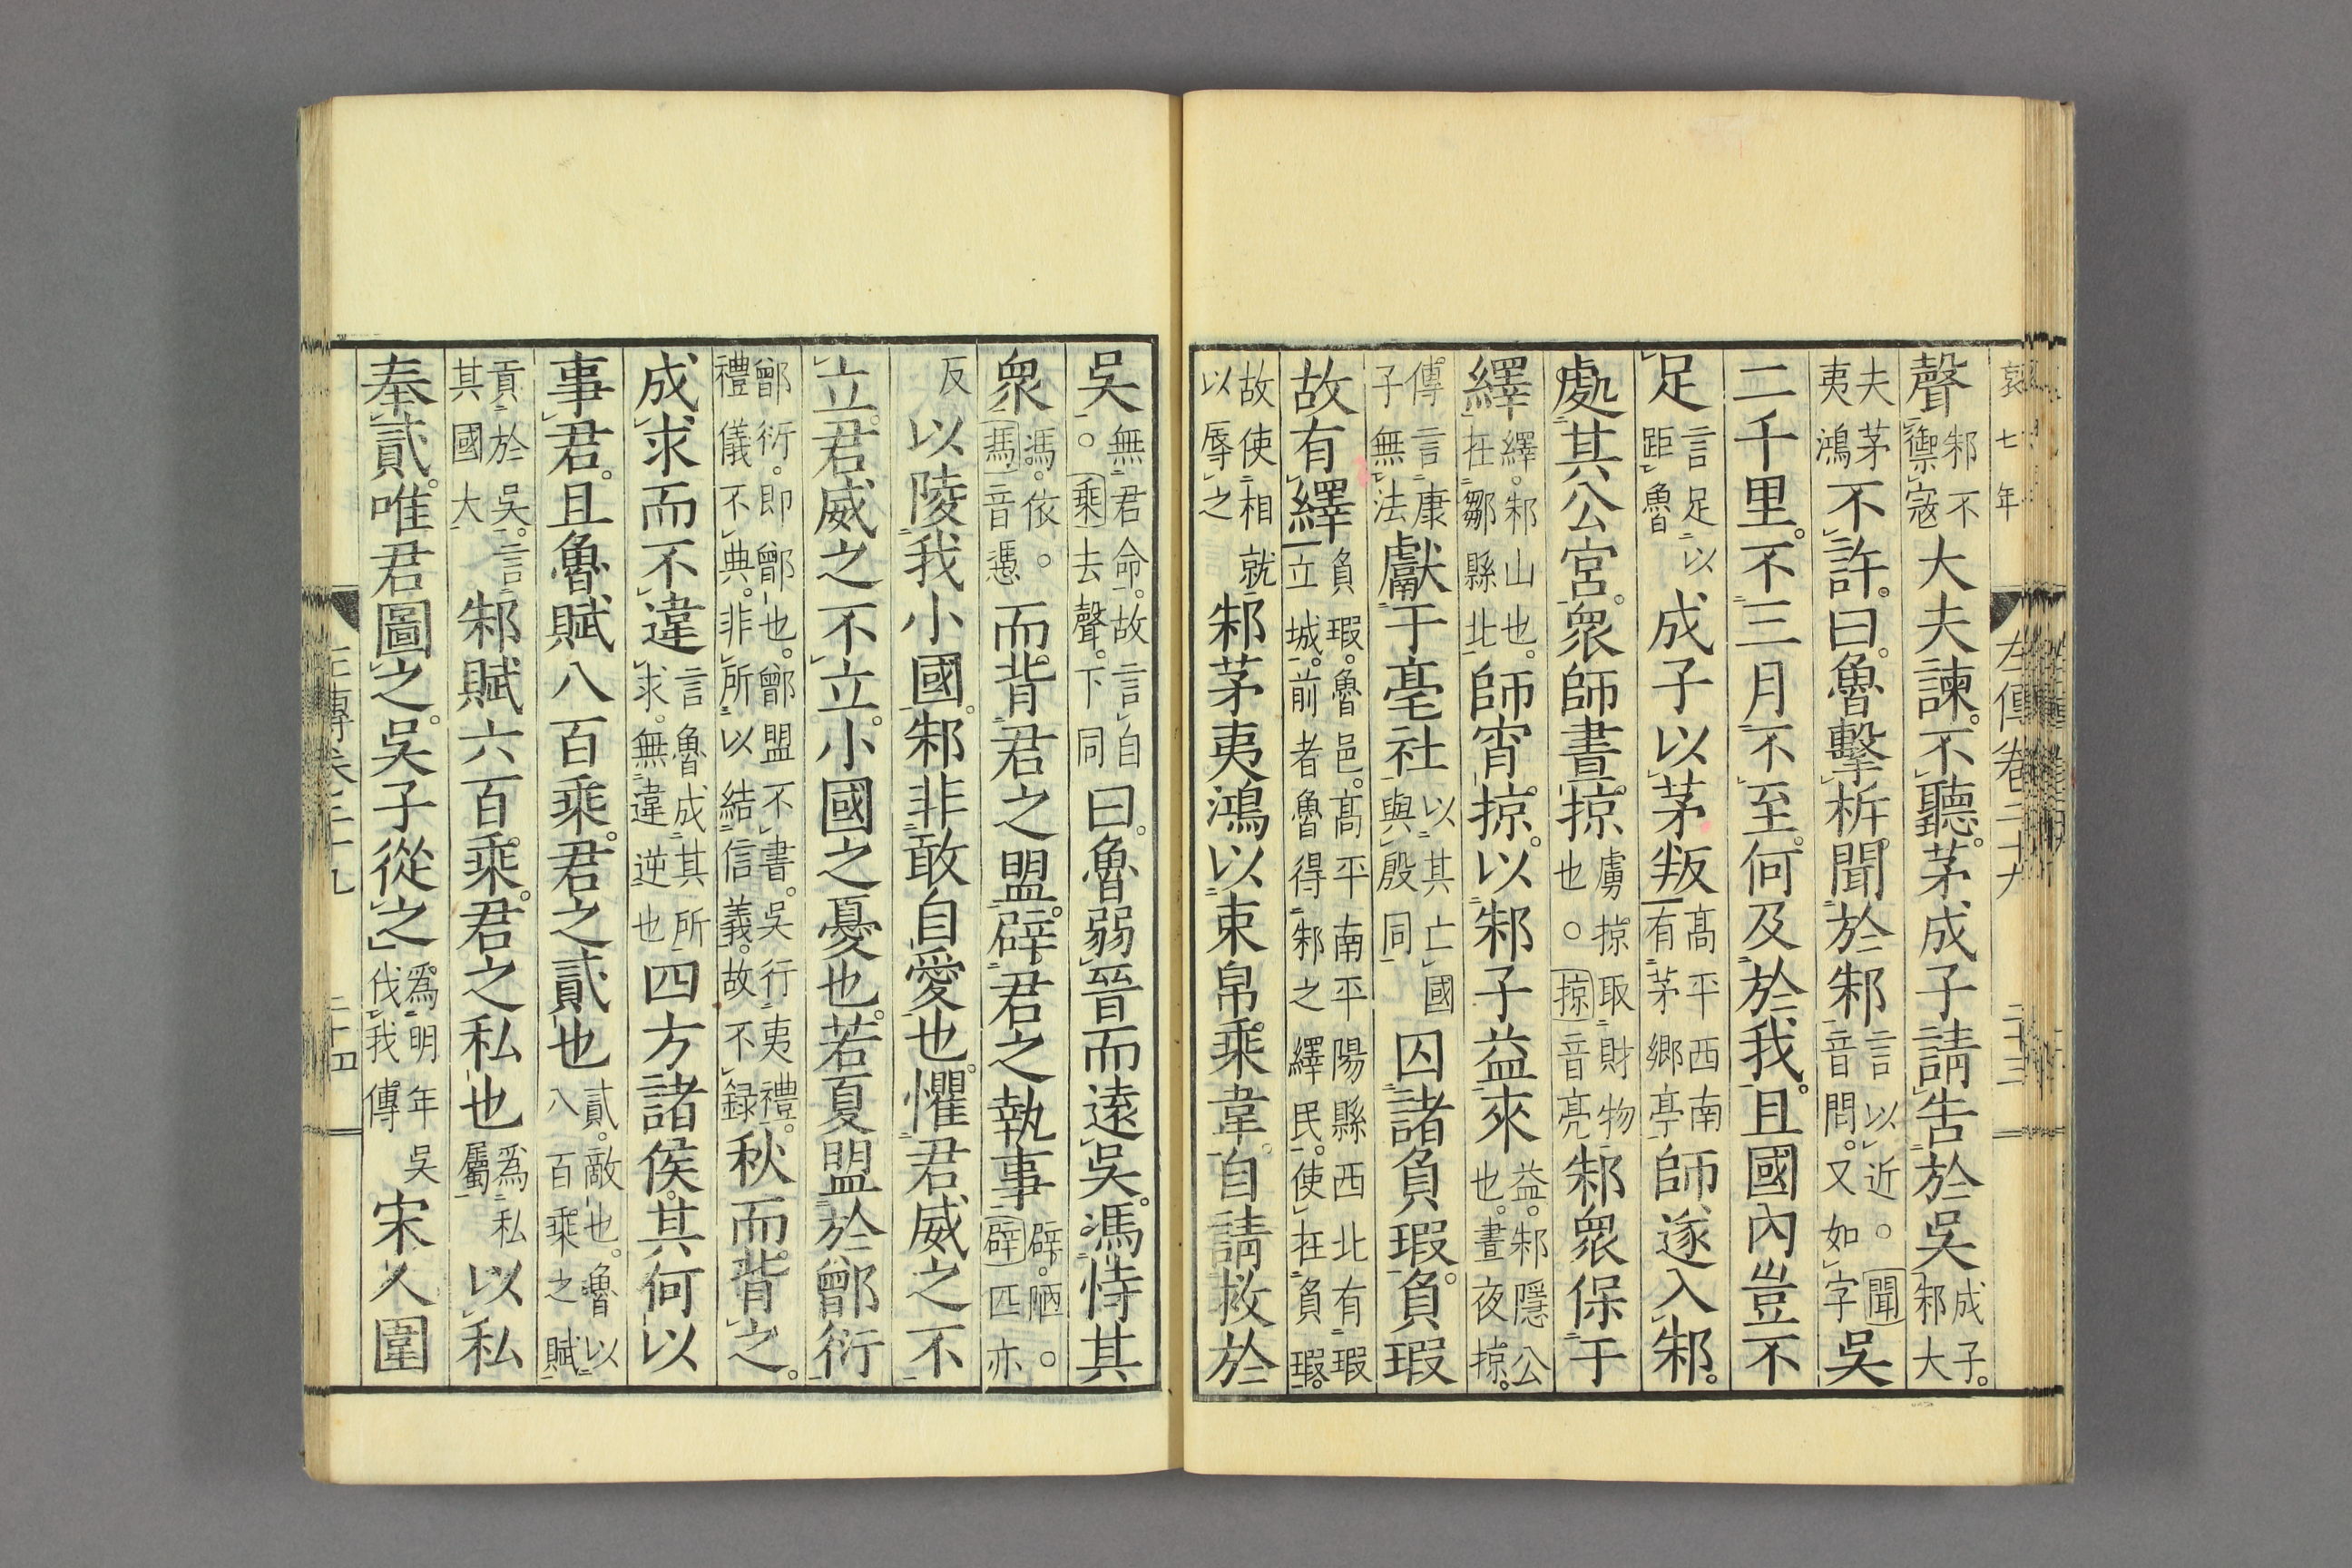 哀七年 左傳卷二十九 二十三
聲邾不禦寇大夫諫。不聽。茅成子請告於吳成子。邾大
夫茅夷鴻不許。曰。魯擊柝。聞於邾言以近。○聞音問。又如字吳
二千里。不三月不至。何及於我。且國內豈不
足言足以距魯成子以茅叛高平西南有茅鄉亭師遂入邾。
處其公宮。眾師晝掠虜掠取財物也。○掠音亮邾眾保于
繹繹。邾山也。在鄒縣北師宵掠。以邾子益來益。邾隱公也。晝夜掠。
傳言康子無法獻于亳社以其亡國與殷同囚諸負瑕。負瑕
故有繹負瑕。魯邑。高平南平陽縣西北有瑕立城。前者魯得邾之繹民。使在負瑕。
故使相就以辱之邾茅夷鴻以束帛乘韋。自請救於
吳無君命。故言自○乘去聲。下同曰。魯弱晉而遠吳。馮恃其
眾馮。依。○馮音憑而背君之盟。辟君之執事辟。陋。○辟匹亦
反以陵我小國。邾非敢自愛也。懼君威之不
立。君威之不立。小國之憂也。若夏盟於鄫衍
鄫衍。即鄫也。鄫盟不書。吳行夷禮。禮儀不典。非所以結信義。故不錄秋而背之。
成求而不違言魯成其所求。無違逆也四方諸侯。其何以
事君。且魯賦八百乘。君之貳也貳。敵也。魯以八百乘之賦
貢於吳。言其國大邾賦六百乘。君之私也為私屬以私
奉貳。唯君圖之。吳子從之為明年吳伐我傳宋人圍
左傳卷二十九 二十四